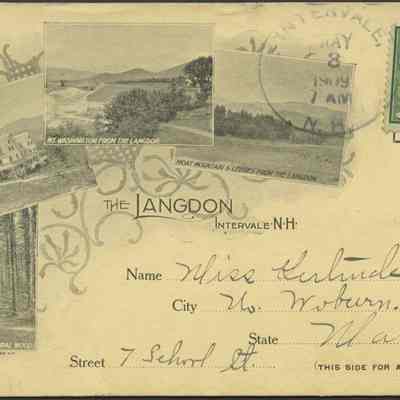 INTERVALE,
MAY
8
1909
7 AM
N.H.
MT. WASHINGTON FROM THE LANGDON
MOAT MOUNTAIN & LEDGES FROM THE LANGDON
THE LANGDON
INTERVALE N·H·
Name Miss Gertrude
City No. Woburn.
State Ma
Street 7 School St.
(THIS SIDE FOR A